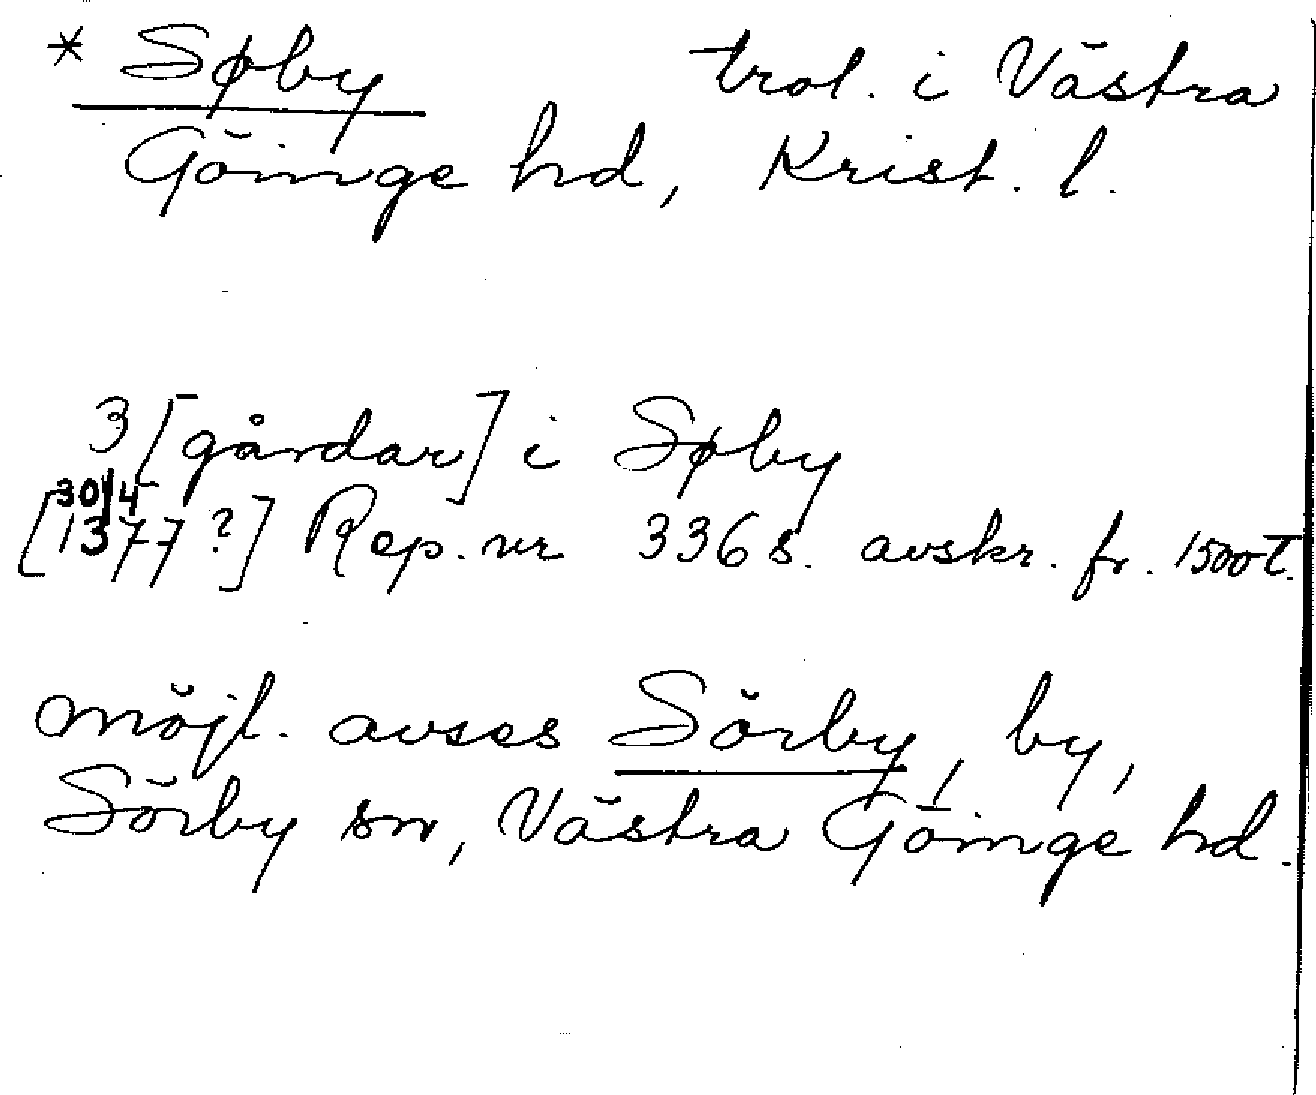 * Søby trol. i Västra
Göinge hd, Krist. l.
3 [gårdar] i Søby
[30/4 1377?] Rep. nr 3368. avskr. fr. 1500 t.
möjl. avses Sörby, by,
Sörby sn, Västra Göinge hd.